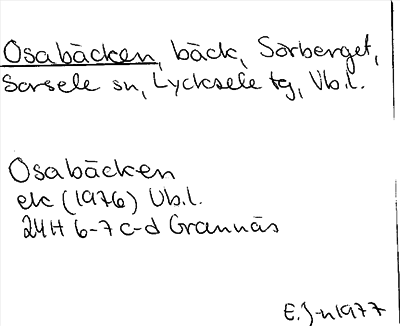 Osabäcken, bäck, Sörberget,
Sorsele sn, Lycksele tg, Vb.l.
Osabäcken
ek (1976) Vb.l.
24H 6-7 c-d Grannäs
E.J-n 1977